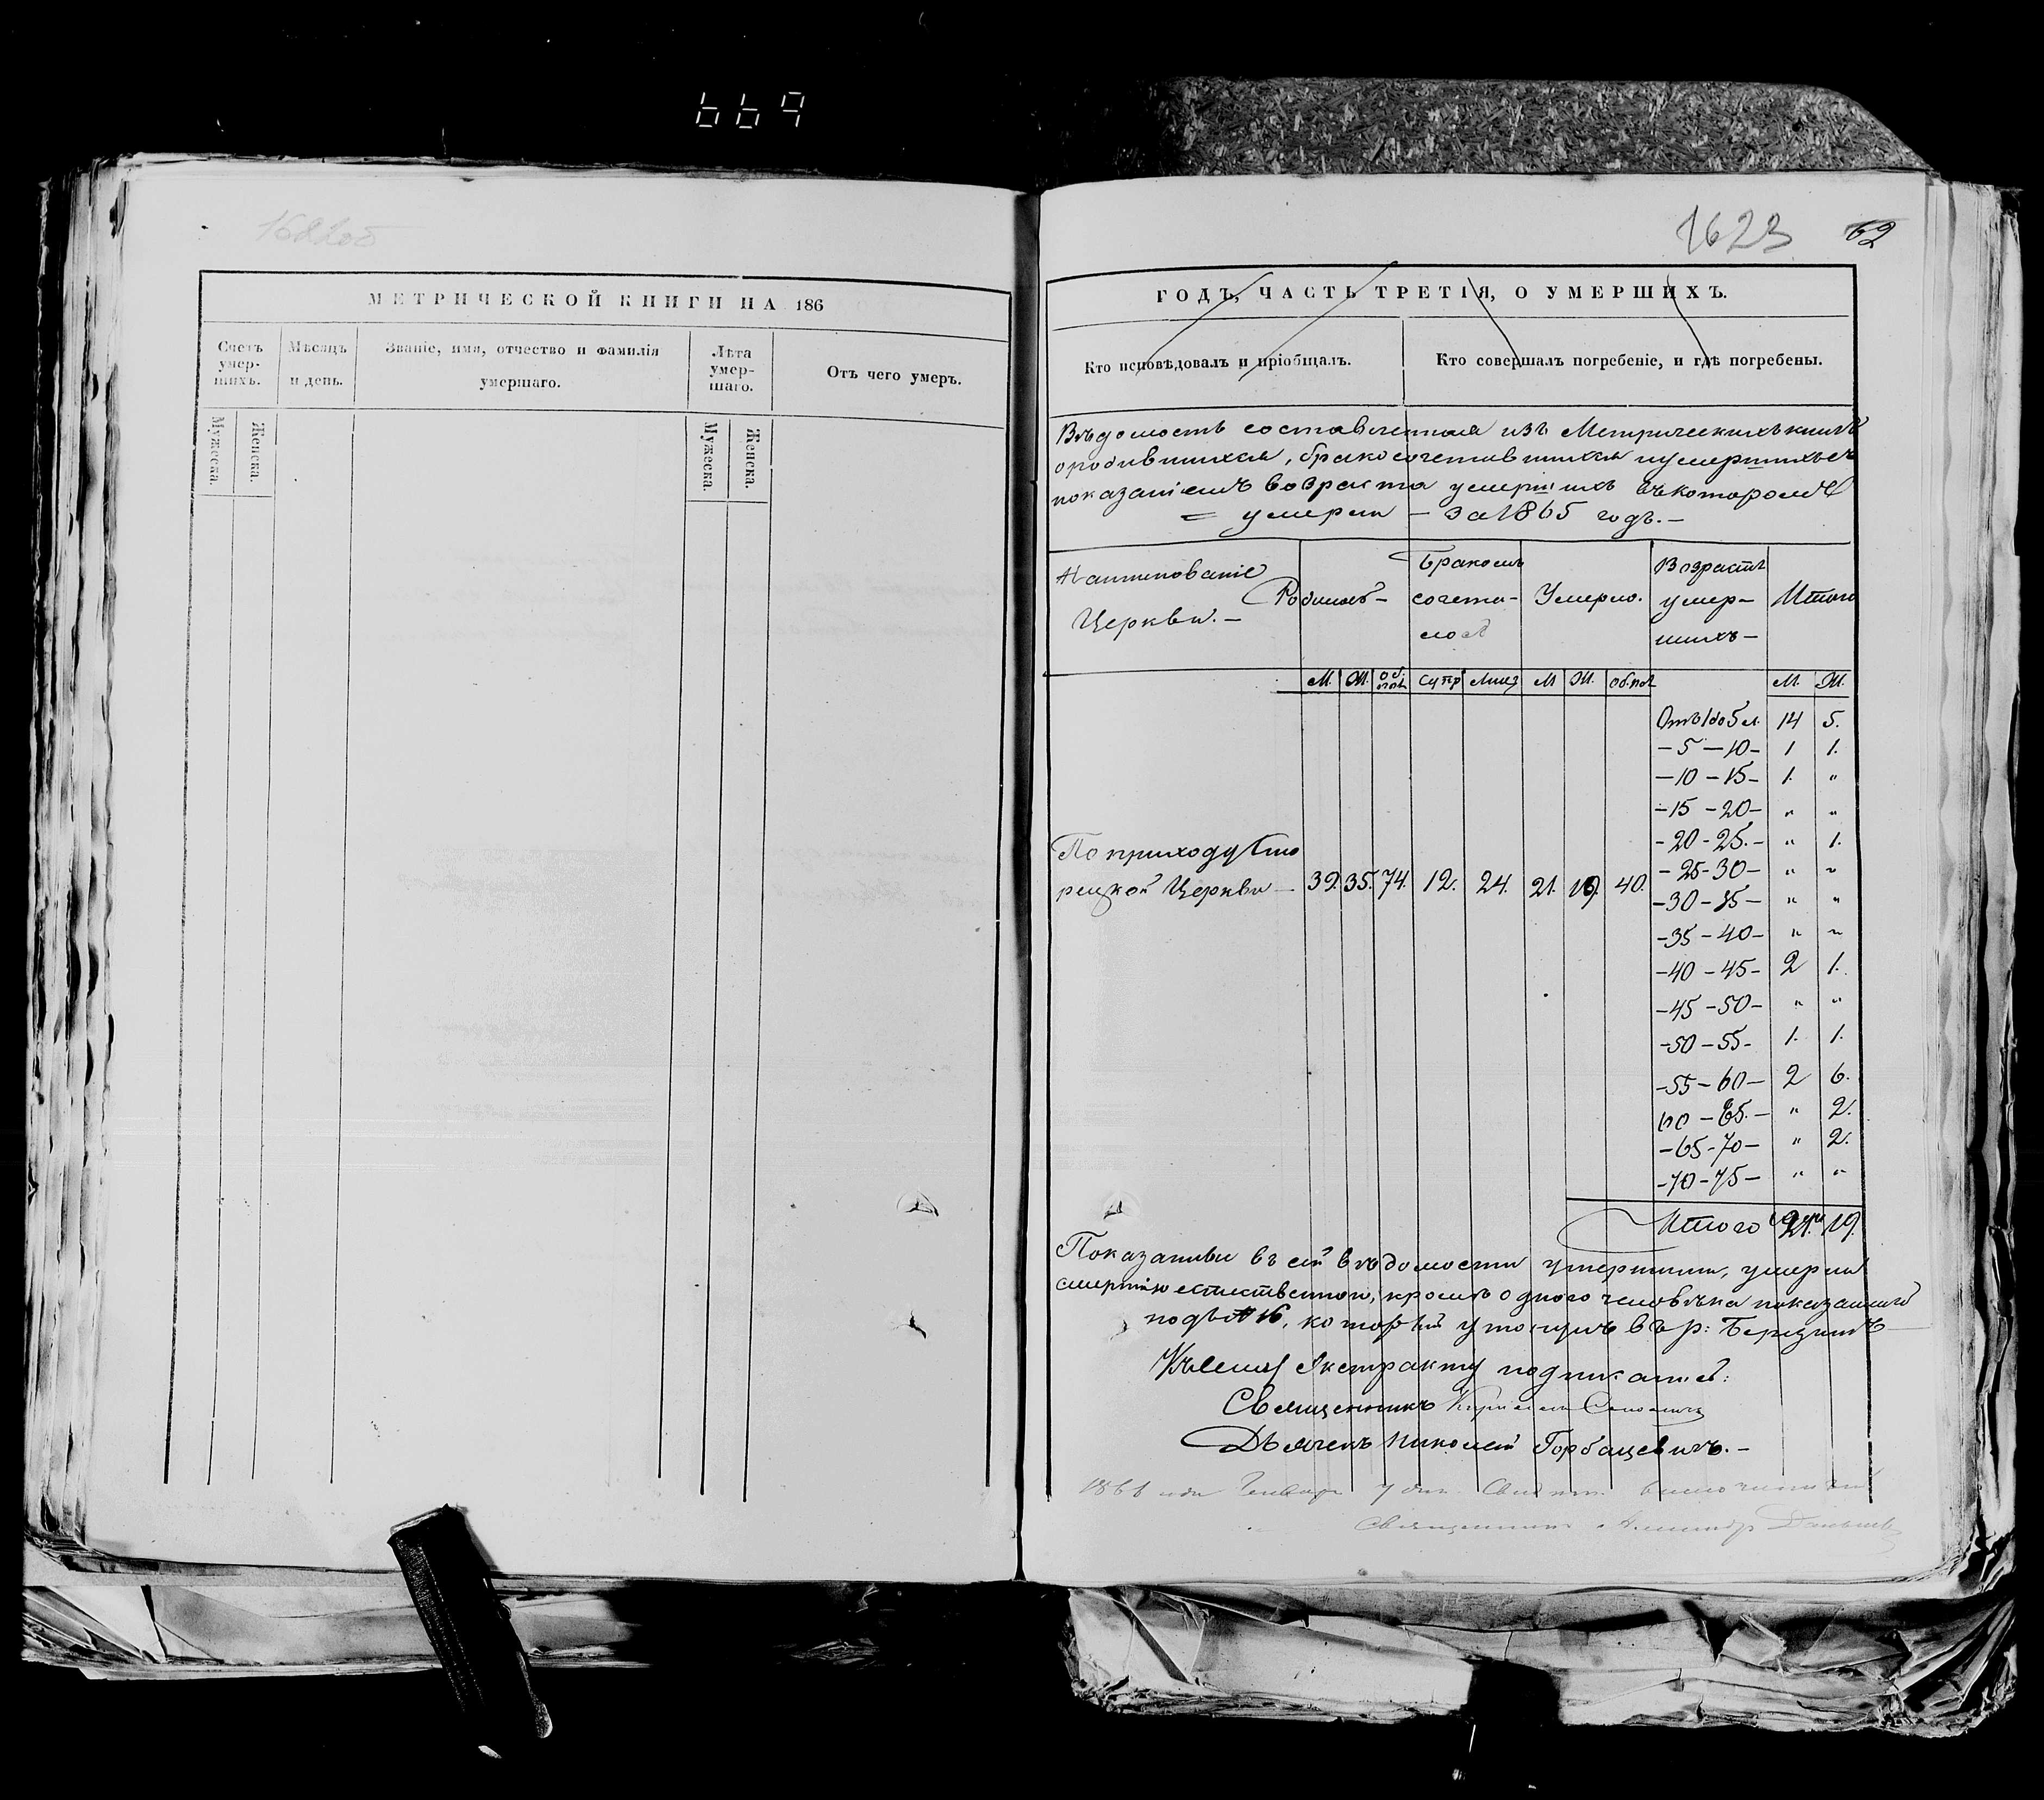 669
1622об
МЕТРИЧЕСКОЙ КНИГИ НА 186
Счетъ умер-шихъ. Мѣсяцъ и день. Званіе, имя, отчество и фамилія умершаго. Лѣта умер-шаго. Отъ чего умеръ.
Мужеска. Женска. Мужеска. Женска.
1623 62
ГОДЪ, ЧАСТЬ ТРЕТІЯ, О УМЕРШИХЪ.
Кто исповѣдовалъ и пріобщалъ. Кто совершалъ погребеніе, и гдѣ погребены.
Вѣдомость составленная изъ Метрическихъ книгъ
о родившихся, бракосочетавшихся и умершихъ съ
показаніемъ возраста умершихъ въ которомъ
= умерли – за 1865 годъ. –
Наименованіе Церкви. – Родилось – Бракомъ сочета-лось Умерло. Возрастъ умер-шихъ – Итого
М. Ж. Об. пол. Супр Лицъ М Ж. Об. пол М. Ж.
Отъ 1 до 5 л. 14 5.
– 5 – 10 – 1 1.
– 10 – 15 – 1. "
– 15 – 20 – " "
– 20 – 25. – " 1.
По приходу
рецкой Церкви – 39. 35. 74. 12. 24. 21. 19. 40.
– 25 – 30 – " "
– 30 – 35 – " "
– 35 – 40 – " "
– 40 – 45 – 2 1.
– 45 – 50 – " "
– 50 – 55 – 1. 1.
– 55 – 60 – 2 6.
60 – 65. – " 2.
– 65 – 70 – " 2.
– 70 – 75 – " "
Итого 21. 19.
Показанные въ сей вѣдомости умершими, умерли
смертію естественною, кромѣ одного человѣка показаннаго
подъ № 16, который утонулъ въ р:
Къ сему Экстракту подписались:
Священникъ
Дьячекъ Николай Горбацевичъ. –
1866 года Генваря 7 дня
Священникъ